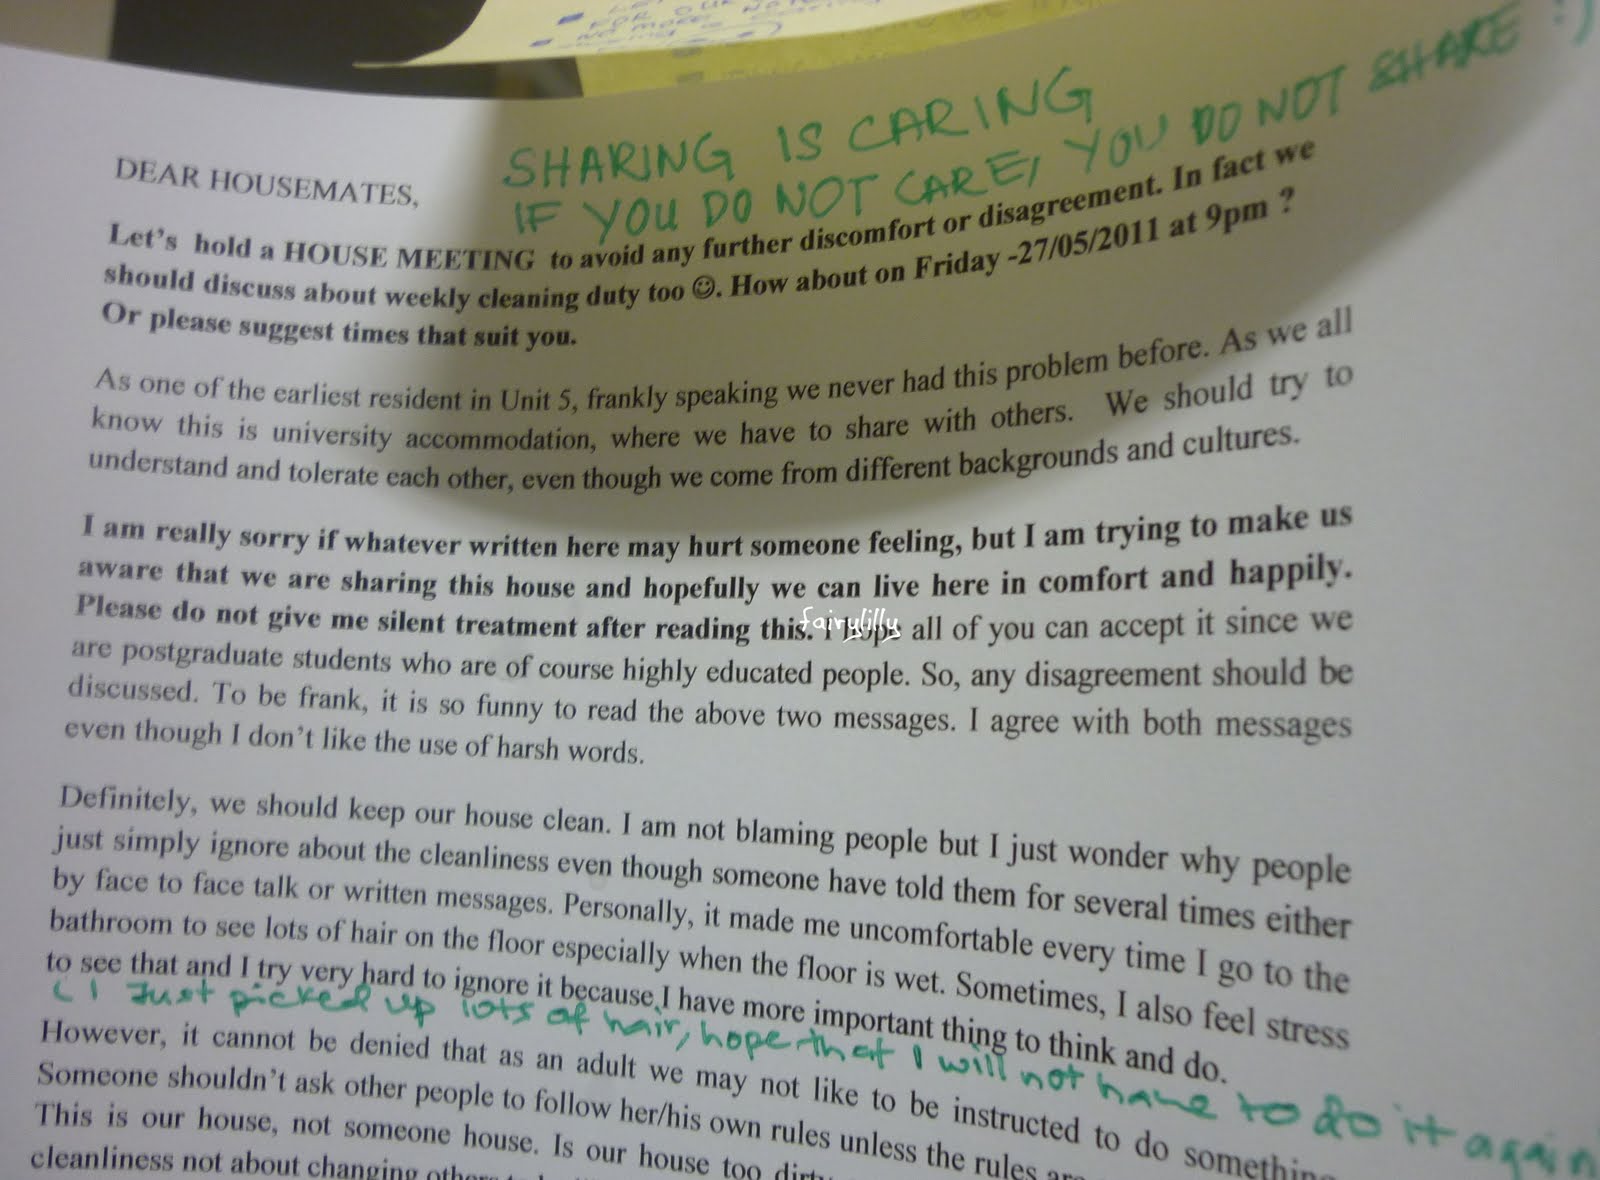 FOR OUR
NO MORE
SHARING IS CARING
IF YOU DO NOT CARE, YOU DO NOT SHARE :)
DEAR HOUSEMATES,
Let's hold a HOUSE MEETING to avoid any further discomfort or disagreement. In fact we
should discuss about weekly cleaning duty too ☺. How about on Friday -27/05/2011 at 9pm ?
Or please suggest times that suit you.
As one of the earliest resident in Unit 5, frankly speaking we never had this problem before. As we all
know this is university accommodation, where we have to share with others. We should try to
understand and tolerate each other, even though we come from different backgrounds and cultures.
I am really sorry if whatever written here may hurt someone feeling, but I am trying to make us
aware that we are sharing this house and hopefully we can live here in comfort and happily.
Please do not give me silent treatment after reading this. I hope all of you can accept it since we
fairylilly
are postgraduate students who are of course highly educated people. So, any disagreement should be
discussed. To be frank, it is so funny to read the above two messages. I agree with both messages
even though I don't like the use of harsh words.
Definitely, we should keep our house clean. I am not blaming people but I just wonder why people
just simply ignore about the cleanliness even though someone have told them for several times either
by face to face talk or written messages. Personally, it made me uncomfortable every time I go to the
bathroom to see lots of hair on the floor especially when the floor is wet. Sometimes, I also feel stress
to see that and I try very hard to ignore it because I have more important thing to think and do.
( I Just picked up lots of hair, hope that I will not have to do it again
However, it cannot be denied that as an adult we may not like to be instructed to do somethin
Someone shouldn't ask other people to follow her/his own rules unless the rules
This is our house, not someone house. Is our house too dirty
cleanliness not about changing